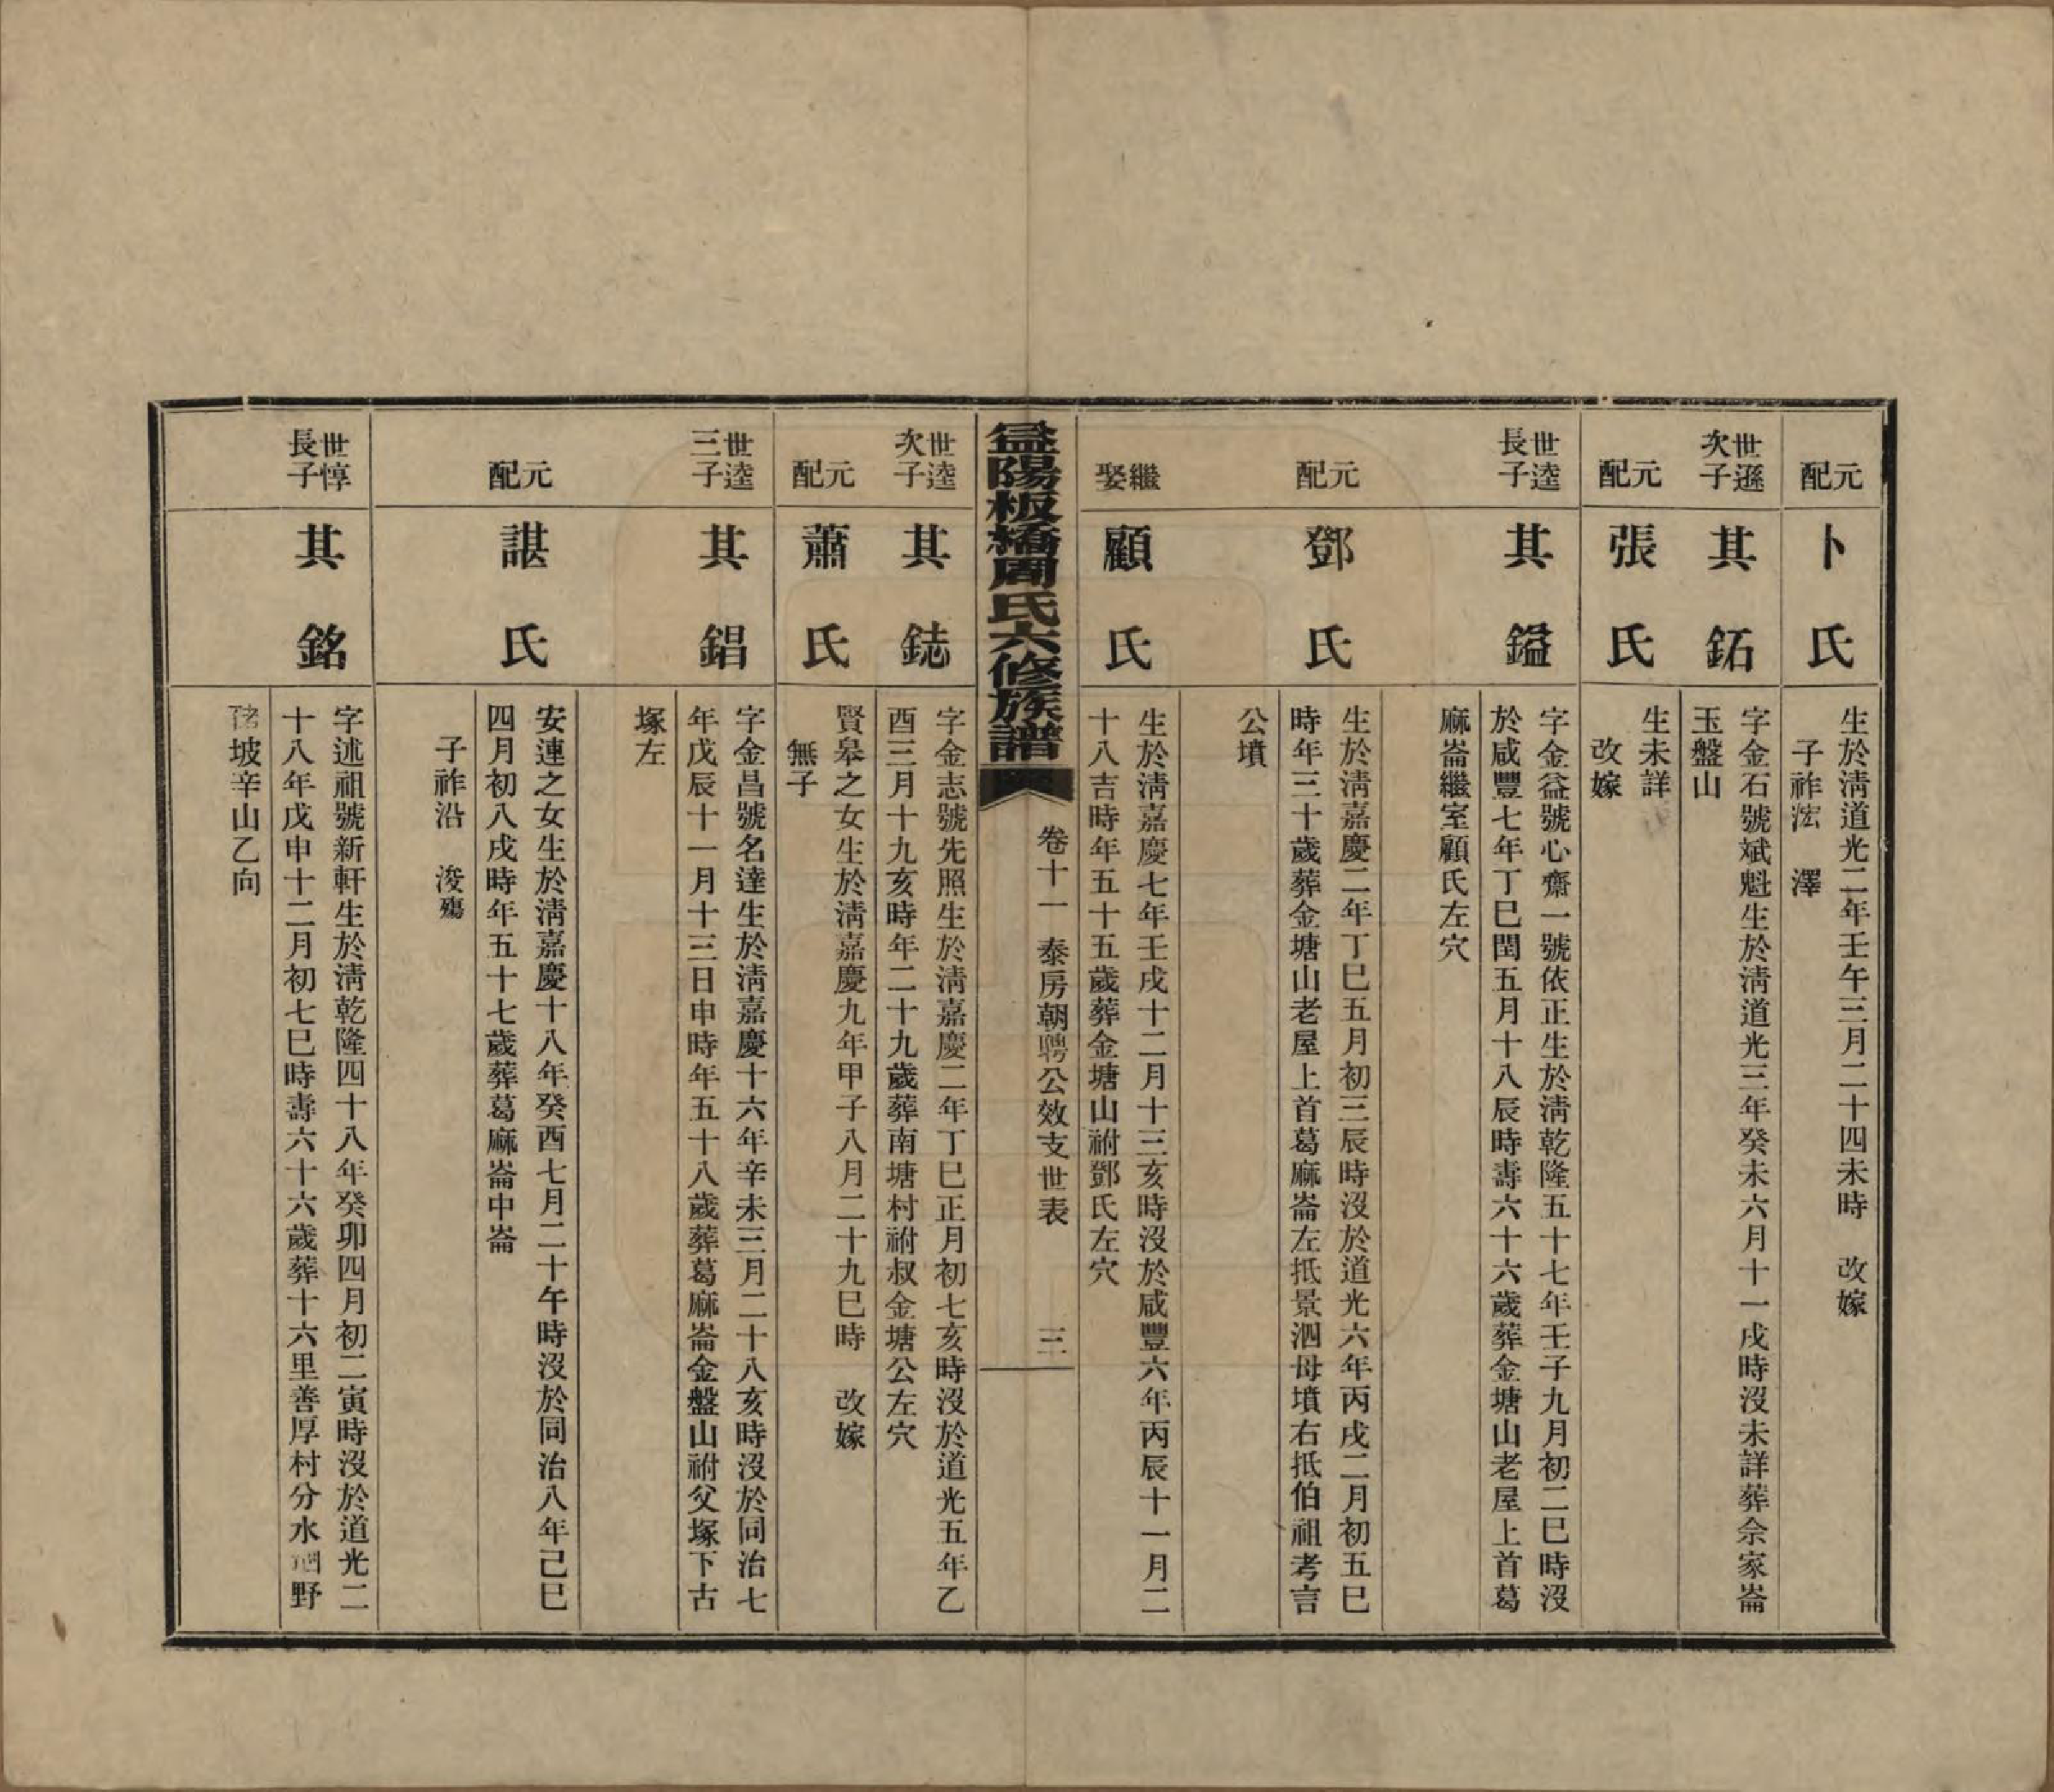 元配
卜氏
生於淸道光二年壬午三月二十四未時　改嫁
子祚浤　澤
世遜次子
其鉐
字金石號斌魁生於淸道光三年癸未六月十一戌時沒未詳葬佘家崙
玉盤山
元配
張氏
生未詳
改嫁
世逵長子
其鎰
字金益號心齋一號依正生於淸乾隆五十七年壬子九月初二巳時沒
於咸豐七年丁巳閏五月十八辰時壽六十六歲葬金塘山老屋上首葛
麻崙繼室顧氏左穴
元配
鄧氏
生於淸嘉慶二年丁巳五月初三辰時沒於道光六年丙戌二月初五巳
時年三十歲葬金塘山老屋上首葛麻崙左抵景泗母墳右抵伯祖考言
公墳
繼娶
顧氏
生於淸嘉慶七年壬戌十二月十三亥時沒於咸豐六年丙辰十一月二
十八吉時年五十五歲葬金塘山祔鄧氏左穴
益陽板橋周氏六修族譜
卷十一　泰房朝聘公效支世表　三
世逵次子
其鋕
字金志號先照生於淸嘉慶二年丁巳正月初七亥時沒於道光五年乙
酉三月十九亥時年二十九歲葬南塘村祔叔金塘公左穴
元配
蕭氏
賢皋之女生於淸嘉慶九年甲子八月二十九巳時　改嫁
無子
世逵三子
其錩
字金昌號名達生於淸嘉慶十六年辛未三月二十八亥時沒於同治七
年戊辰十一月十三日申時年五十八歲葬葛麻崙金盤山祔父塚下古
塚左
元配
諶氏
安連之女生於淸嘉慶十八年癸酉七月二十午時沒於同治八年己巳
四月初八戌時年五十七歲葬葛麻崙中崙
子祚沿　浚殤
世惇長子
其銘
字述祖號新軒生於淸乾隆四十八年癸卯四月初二寅時沒於道光二
十八年戊申十二月初七巳時壽六十六歲葬十六里善厚村分水野
坡辛山乙向